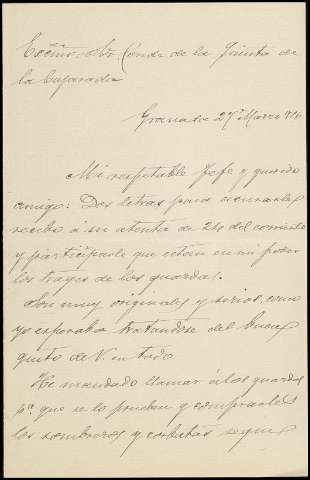 Excmo. Sr. Conde de la Quinta de
la Enjarada
Granada 27 Marzo 916
Mi respetable Jefe y querido
amigo: Dos letras para acusarle
recibo á su atenta de 24 del corriente
y participarle que están en mi poder
los trages de los guardas.
Son muy originales y serios, como
yo esperaba tratandose del buen
gusto de V. en todo
He mandado llamar á los guardas
pª. que se lo prueben y comprarles
los sombreros y corbatas segun